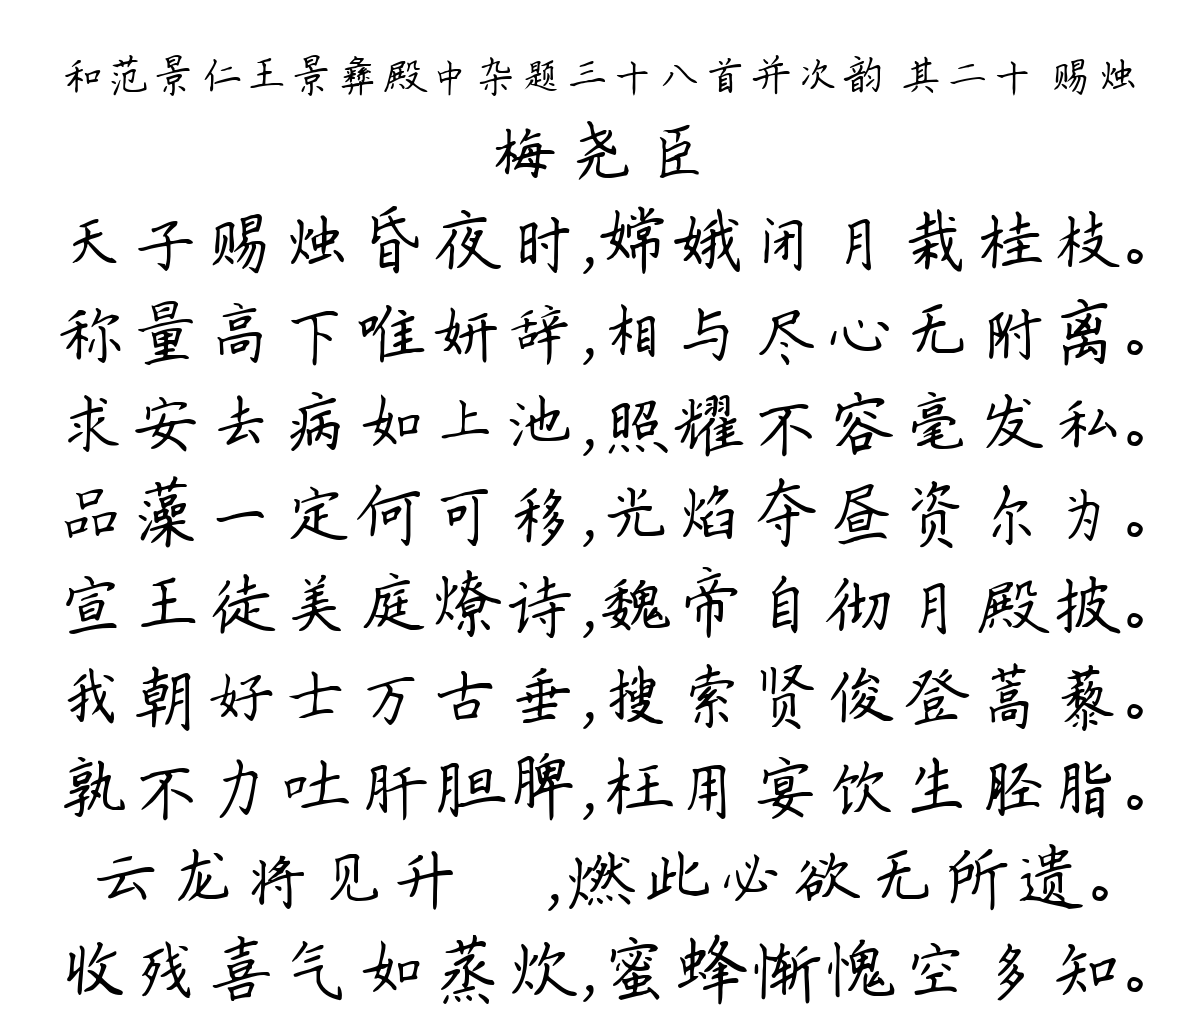 和范景仁王景彝殿中杂题三十八首并次韵 其二十 赐烛
梅尧臣
天子赐烛昏夜时,嫦娥闭月栽桂枝。
称量高下唯妍辞,相与尽心无附离。
求安去病如上池,照耀不容毫发私。
品藻一定何可移,光焰夺昼资尔为。
宣王徒美庭燎诗,魏帝自彻月殿披。
我朝好士万古垂,搜索贤俊登蒿藜。
孰不力吐肝胆脾,枉用宴饮生胫脂。
云龙将见升 ,燃此必欲无所遗。
收残喜气如蒸炊,蜜蜂惭愧空多知。